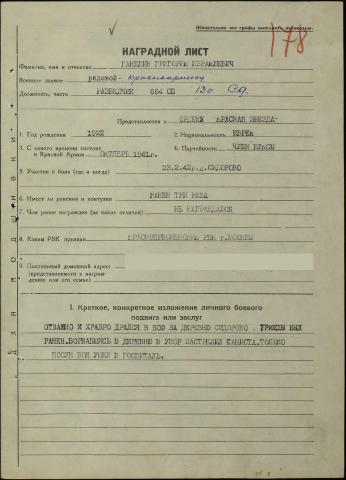 Обязательно все графы заполнить полностью:
178
НАГРАДНОЙ ЛИСТ
Фамилия, имя и отчество ГАНЕЛИН ГРИГОРИЙ ИЗРАИЛЕВИЧ
Военное звание рядовой - красноармеец
Должность, часть РАЗВЕДЧИК 664 СП 130 СД.
Представляется к ОРДЕНУ "КРАСНАЯ ЗВЕЗДА"
1. Год рождения 1922 2. Национальность ЕВРЕЙ
3. С какого времени состоит в Красной Армии ОКТЯБРЬ 1941г. 4. Партийность ЧЛЕН ВЛКСМ
5. Участие в боях (где и когда) 23.2.42г.д.СИДОРОВО
6. Имеет ли ранения и контузии РАНЕН ТРИ РАЗА
7. Чем ранее награжден (за какие отличия) НЕ НАГРАЖДАЛСЯ
8. Каким РВК призван КРАСНОПРЕСНЕНСКИМ РВК г.МОСКВЫ
9. Постоянный домашний адрес
(представляемого к награждению или его семьи)
ДЛЯ ПОДШИВКИ
I. Краткое, конкретное изложение личного боевого
подвига или заслуг
ОТВАЖНО И ХРАБРО ДРАЛСЯ В БОЮ ЗА ДЕРЕВНЮ СИДОРОВО. ТРИЖДЫ БЫЛ
РАНЕН.ВОРВАВШИСЬ В ДЕРЕВНЮ В УПОР ЗАСТРЕЛИЛ ФАШИСТА.ТОЛЬКО
ПОСЛЕ БОЯ УШЕЛ В ГОСПИТАЛЬ.